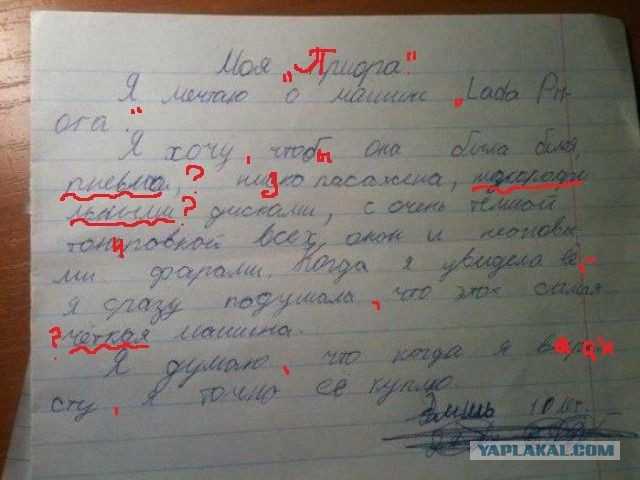 Моя "Приора"
Я мечтаю о машине "Lada Pri-
ora".
Я хочу, чтобы она была белая,
пневма, ? низко посажена,
? дисками, с очень тёмной
тонировкой всех окон и неоновы-
ми фарами. Когда я увидела её,
я сразу подумала, что это самая
? чёткая машина.
Я думаю, что когда я выра-
сту, я точно её куплю.
10 лет.
YAPLAKAL.COM